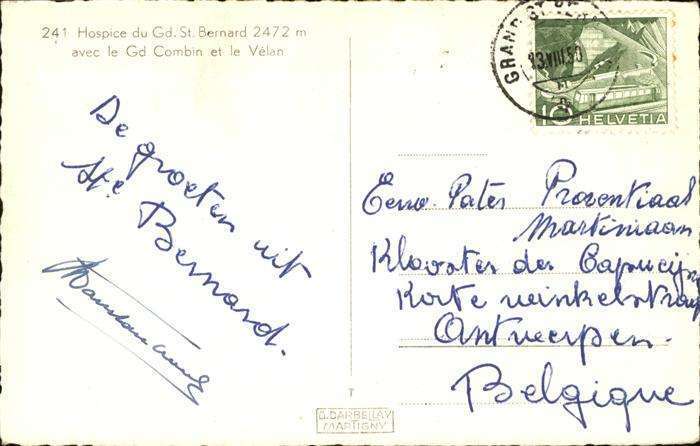 241 Hospice du Gd. St. Bernard 2472 m
avec le Gd Combin et le Vélan
GRAND ST BE
23.VIII.50
10 HELVETIA
De groeten uit
Ste Bernard.
Eerw. Pater Provintiaal
Martiniaan
Klooster der Capucij
Korte winkelstraat
Antwerpen.
Belgique
T
O. DARBELLAY
MARTIGNY